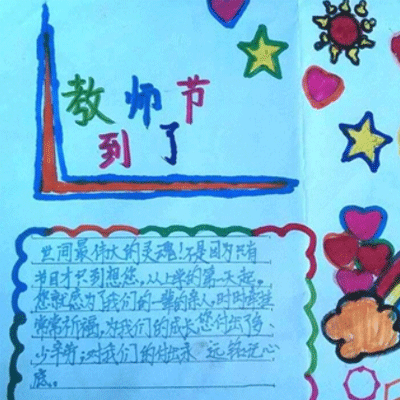 教师节
到了
世间最伟大的灵魂!不是因为只有
节日才只到想您,从上学的第一天起。
您就感为了我们的一辈的亲人,时时牵挂
常常祈福,为我们的成长您付出了多
少辛劳;对我们的付出永远铭记心
底。